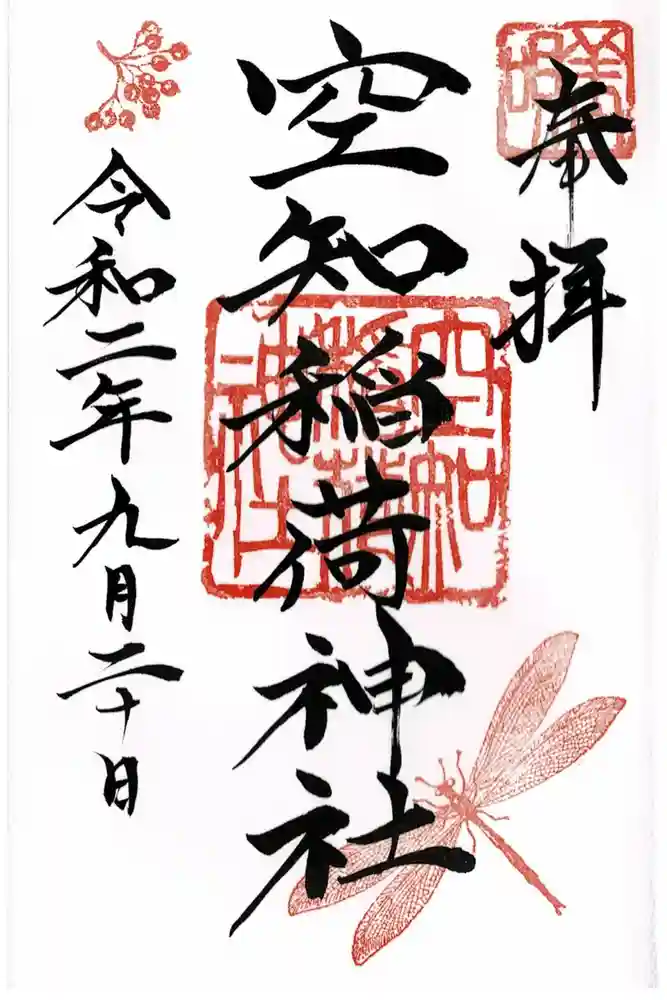 奉拝
空知稲荷神社
令和二年九月二十日
空知
稲荷
神社